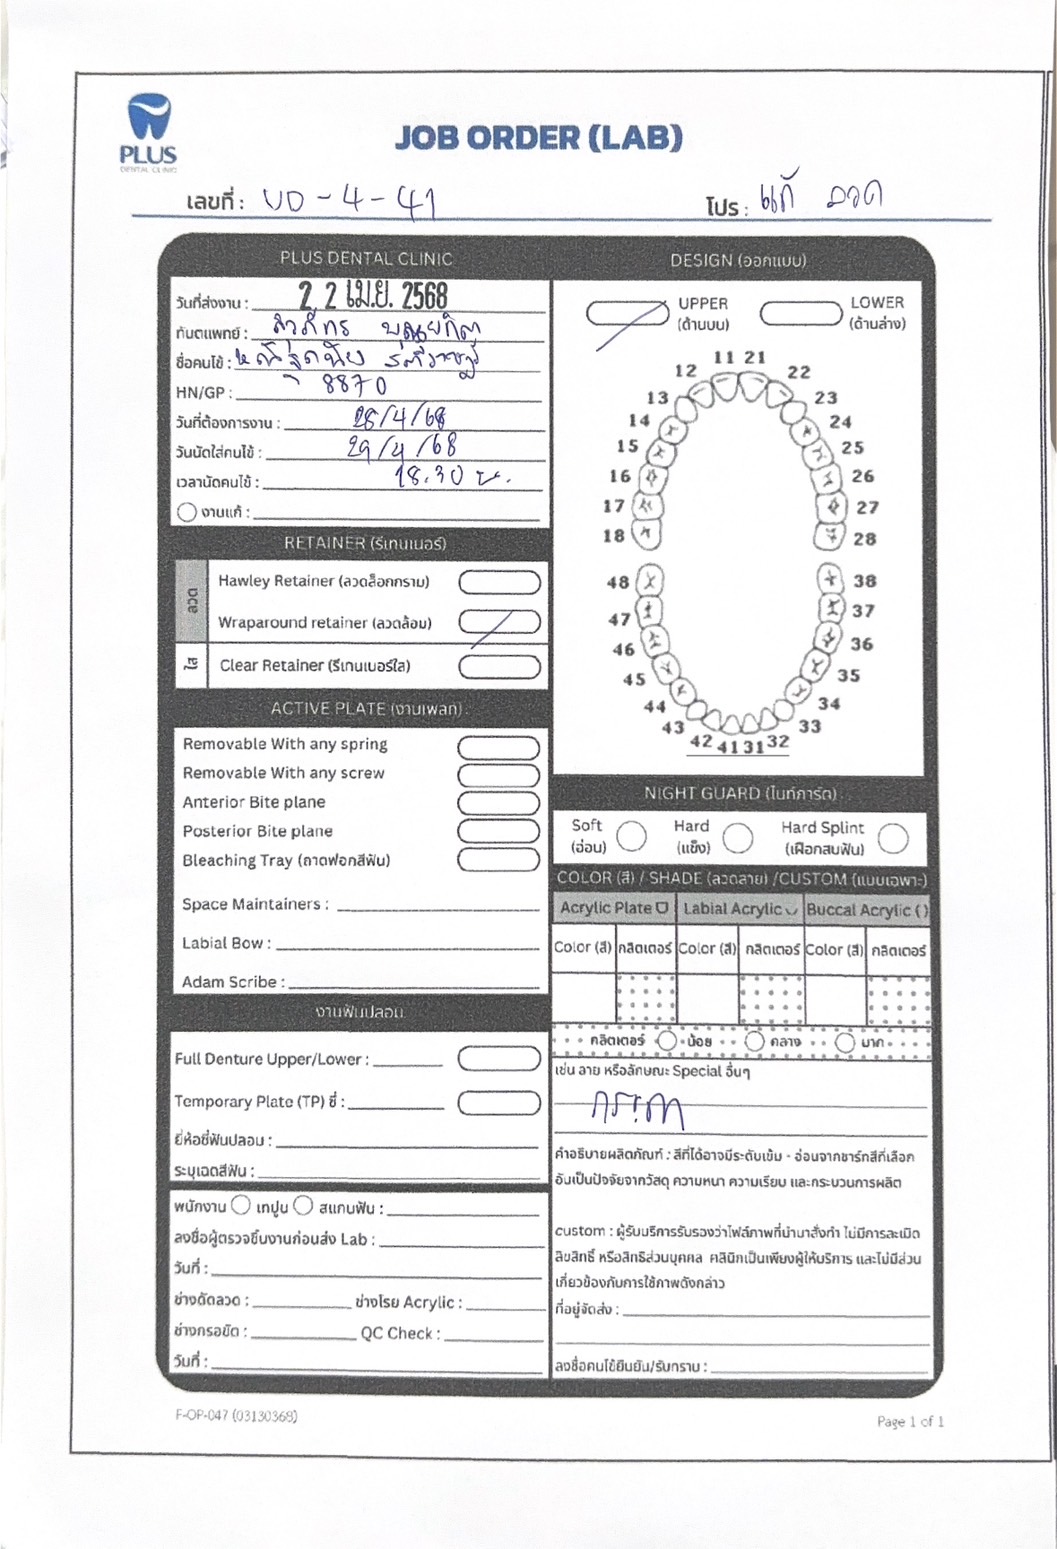 PLUS
DENTAL CLINIC
JOB ORDER (LAB)
เลขที่ : UD-4-41
โปร : แก้ ลวด
PLUS DENTAL CLINIC
วันที่ส่งงาน : 22 เม.ย. 2568
ทันตแพทย์ :
ชื่อคนไข้ :
HN/GP : 8870
วันที่ต้องการงาน : 28/4/68
วันนัดใส่คนไข้ : 29/4/68
เวลานัดคนไข้ : 18.30 น.
งานแก้ :
RETAINER (รีเทนเนอร์)
ลวด
Hawley Retainer (ลวดล็อกกราม)
Wraparound retainer (ลวดล้อม)
ใส
Clear Retainer (รีเทนเนอร์ใส)
ACTIVE PLATE (งานเพลท)
Removable With any spring
Removable With any screw
Anterior Bite plane
Posterior Bite plane
Bleaching Tray (ถาดฟอกสีฟัน)
Space Maintainers :
Labial Bow :
Adam Scribe :
งานฟันปลอม
Full Denture Upper/Lower :
Temporary Plate (TP) ซี่ :
ยี่ห้อซี่ฟันปลอม :
ระบุเฉดสีฟัน :
พนักงาน เทปูน สแกนฟัน :
ลงชื่อผู้ตรวจชิ้นงานก่อนส่ง Lab :
วันที่ :
ช่างดัดลวด : ช่างโรย Acrylic :
ช่างกรอขัด : QC Check :
วันที่ :
DESIGN (ออกแบบ)
UPPER LOWER
(ด้านบน) (ด้านล่าง)
11 21
12 22
13 23
14 24
15 25
16 26
17 27
18 28
48 38
47 37
46 36
45 35
44 34
43 33
42 41 31 32
NIGHT GUARD (ไนท์การ์ด)
Soft Hard Hard Splint
(อ่อน) (แข็ง) (เฝือกสบฟัน)
COLOR (สี) / SHADE (ลวดลาย) /CUSTOM (แบบเฉพาะ)
Acrylic Plate Labial Acrylic Buccal Acrylic ( )
Color (สี) กลิตเตอร์ Color (สี) กลิตเตอร์ Color (สี) กลิตเตอร์
กลิตเตอร์ น้อย กลาง มาก
เช่น ลาย หรือลักษณะ Special อื่นๆ
คำอธิบายผลิตภัณฑ์ : สีที่ได้อาจมีระดับเข้ม - อ่อนจากชาร์ทสีที่เลือก
อันเป็นปัจจัยจากวัสดุ ความหนา ความเรียบ และกระบวนการผลิต
custom : ผู้รับบริการรับรองว่าไฟล์ภาพที่นำมาสั่งทำ ไม่มีการละเมิด
ลิขสิทธิ์ หรือสิทธิส่วนบุคคล คลินิกเป็นเพียงผู้ให้บริการ และไม่มีส่วน
เกี่ยวข้องกับการใช้ภาพดังกล่าว
ที่อยู่จัดส่ง :
ลงชื่อคนไข้ยืนยัน/รับทราบ :
F-OP-047 (03130368)
Page 1 of 1